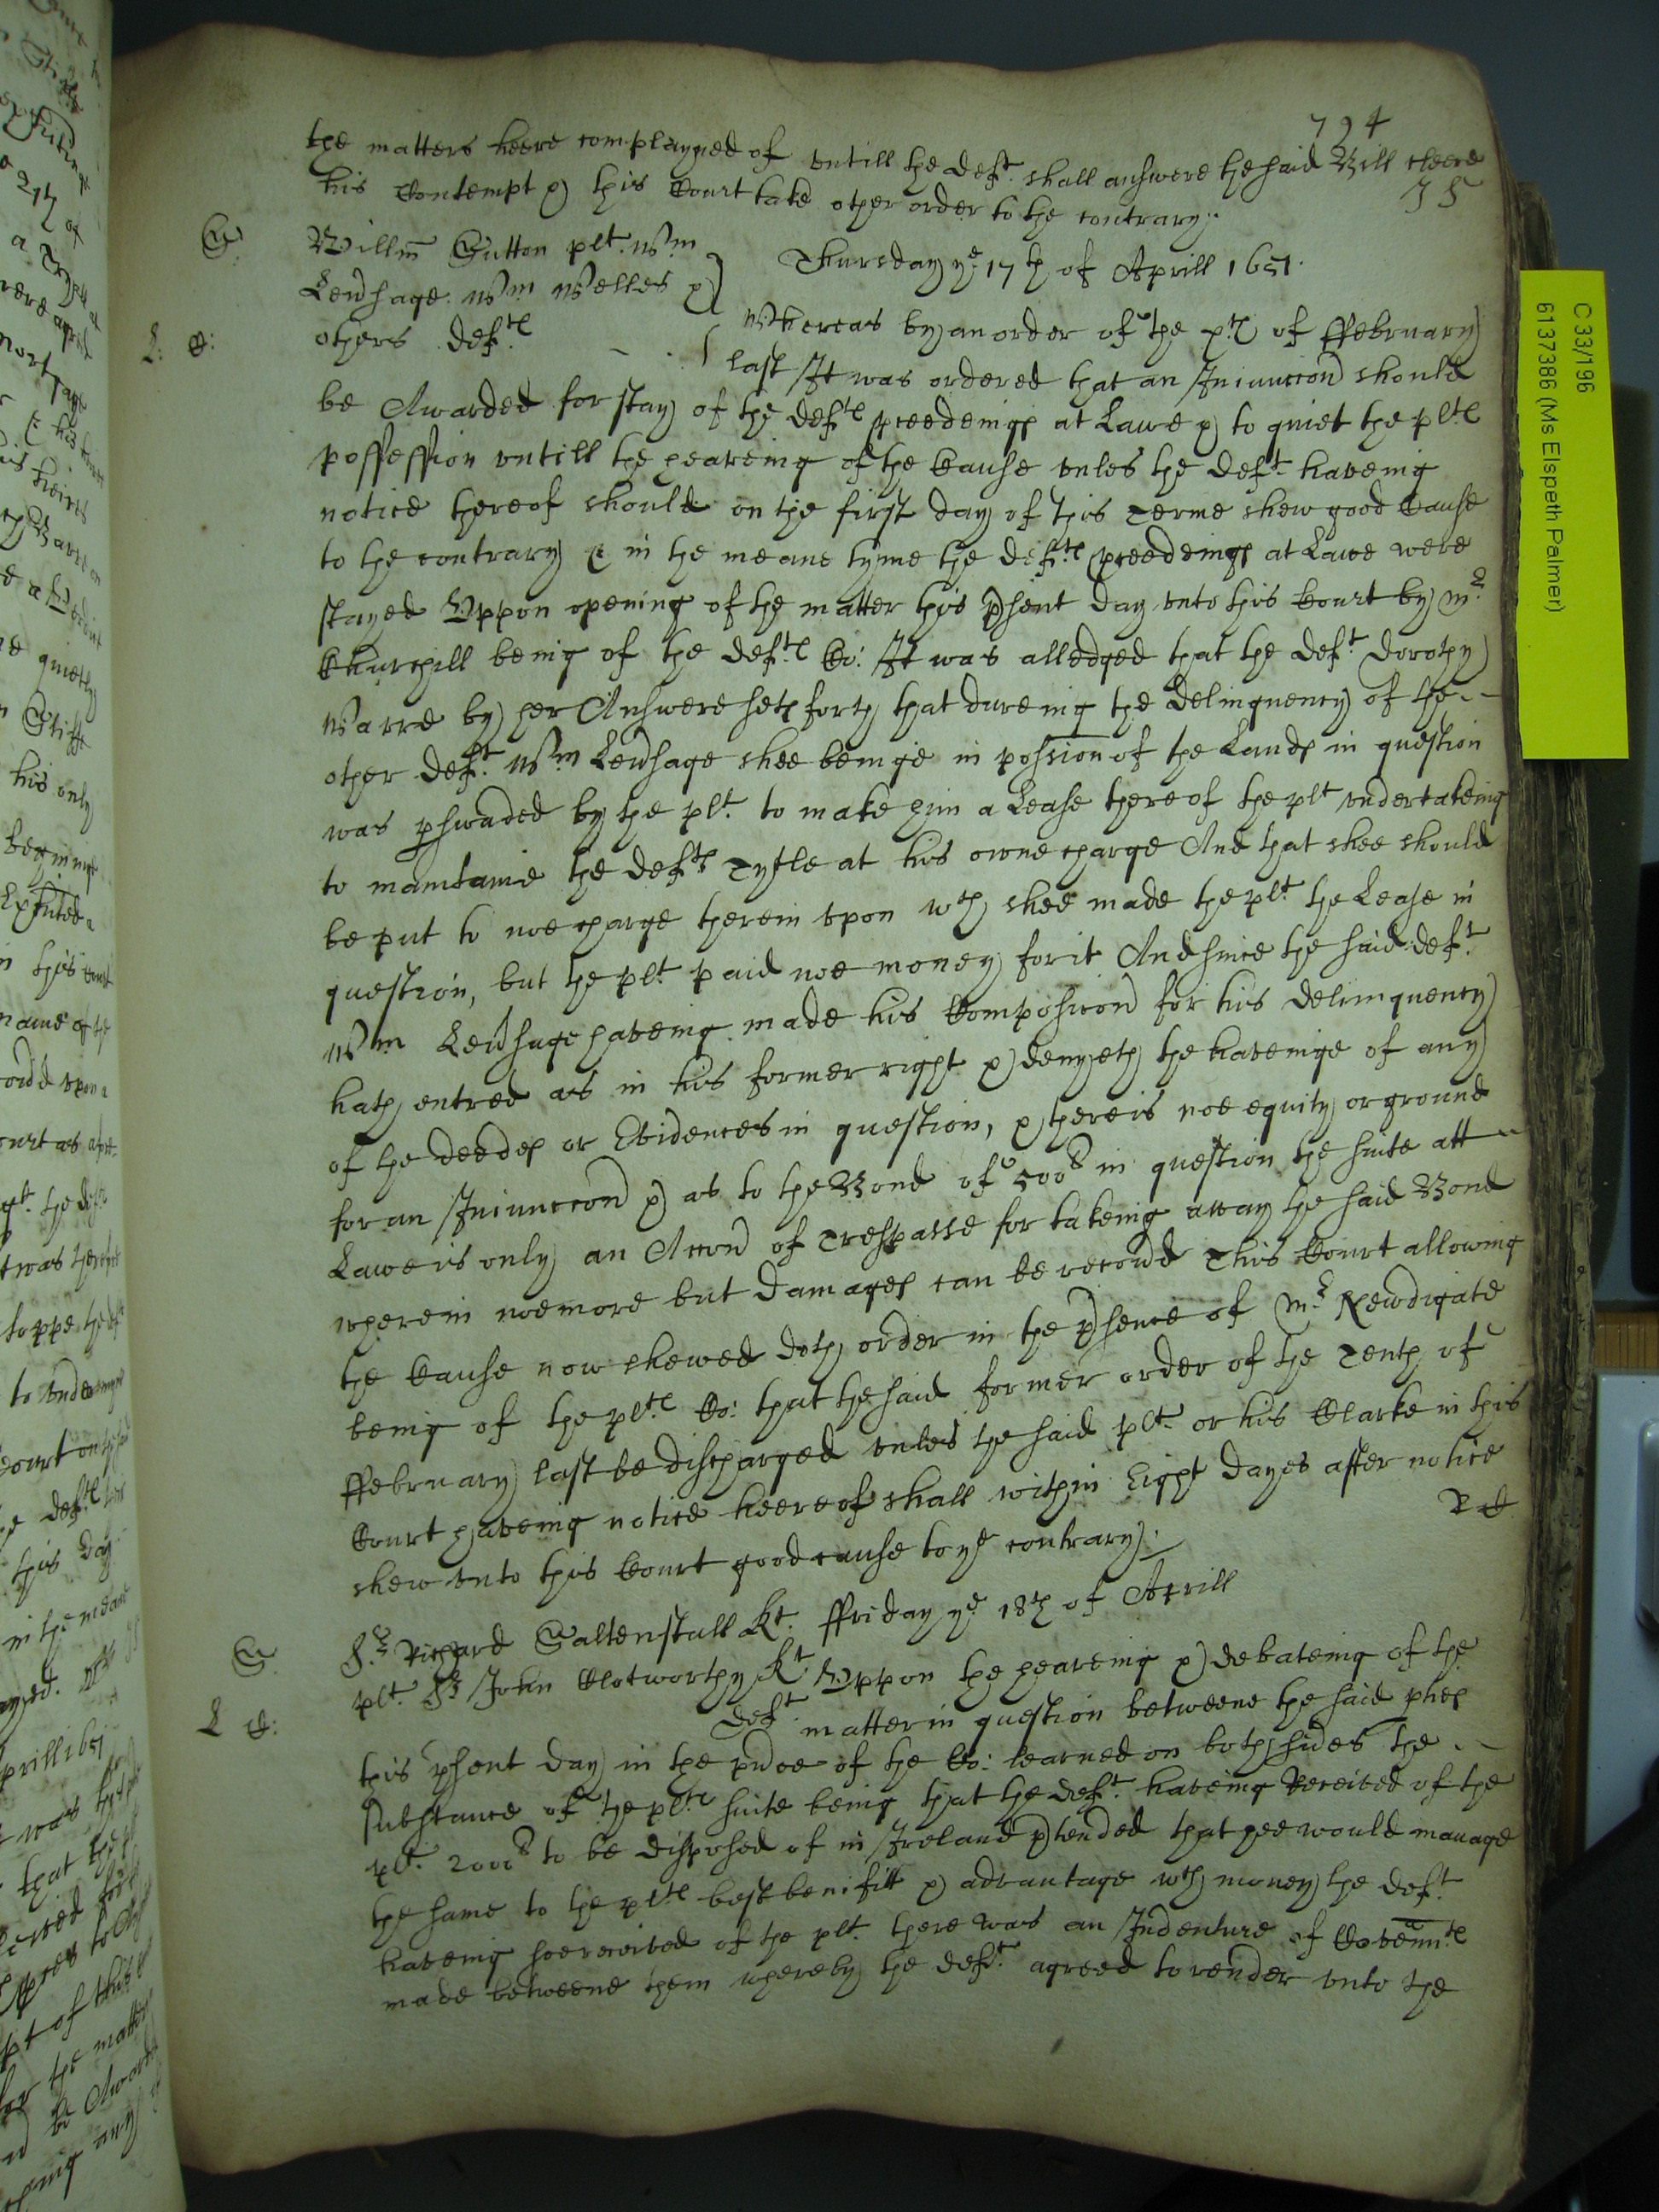 794
the matters heere complayned of untill the Deft. shall answere the said Bill cleere
his Contempt & this Court take other order to the contrary.
JS
S
Willm Sutton plt. Wm
Lewsage. Wm Welles &
others Defts
Thursday ye 17th of Aprill 1651.
L: C:
Whereas by an order of the xth of ffebruary
last It was ordered that an Iniunccon should
be Awarded for stay of the Defts proceedeings at Lawe & to quiet the plts
possession untill the heareing of the Cause unles the Deft. haveing
notice thereof should on the first day of this Terme shew good Cause
to the contrary & in the meane tyme the Defts proceedeings at Lawe were
stayed Uppon opening of the matter this psent day unto this Court by Mr
Churchill being of the Defts Co: It was alledged that the Deft Dorothy
Warre by her Answere seth forth that dureing the Delinquency of the
other Deft. Wm Lewsage shee beinge in possion of the Lands in question
was pswaded by the plt. to make him a Lease thereof the plt undertakeing
to maintaine the Defts Tytle at his owne charge And that shee should
be put to noe charge therein upon wch shee made the plt. the Lease in
question, but the plt. paid noe money for it And since the said Deft
Wm Lewsage haveing made his Composicon for his Delinquency
hath entred as in his former right & denyeth the haveinge of any
of the deedes or Evidences in question, & there is noe equity or ground
for an Iniunccon & as to the Bond of 500l in question the suite att
Lawe is only an Accon of Trespasse for takeing away the said Bond
wherein noe more but Damages can be recovd This Court allowing
the Cause now shewed doth order in the psence of Mr Newdigate
being of the plts Co: that the said former order of the Tenth of
ffebruary last be discharged unles the said plt. or his Clarke in this
Court haveing notice heereof shall within Eight Dayes after notice
shew unto this Court good cause to ye contrary.
R C
S.
Sr Richard Saltenstall Kt.
plt. Sr John Clotworthy Kt
Deft
ffriday ye 18th of Aprill
L C:
Uppon the heareing & debateing of the
matter in question betweene the said pties
this psent day in the pnce of the Co: learned on both sides the
substance of the plts suite being that the Deft. haveing Received of the
plt. 2000l to be disposed of in Ireland ptended that hee would manage
the same to the plts best benifitt & advantage wch money the Deft
haveing soe received of the plt. there was an Indenture of Covennts
made betweene them whereby the Deft. agreed to render unto the
C 33/196
6137386 (Ms Elspeth Palmer)